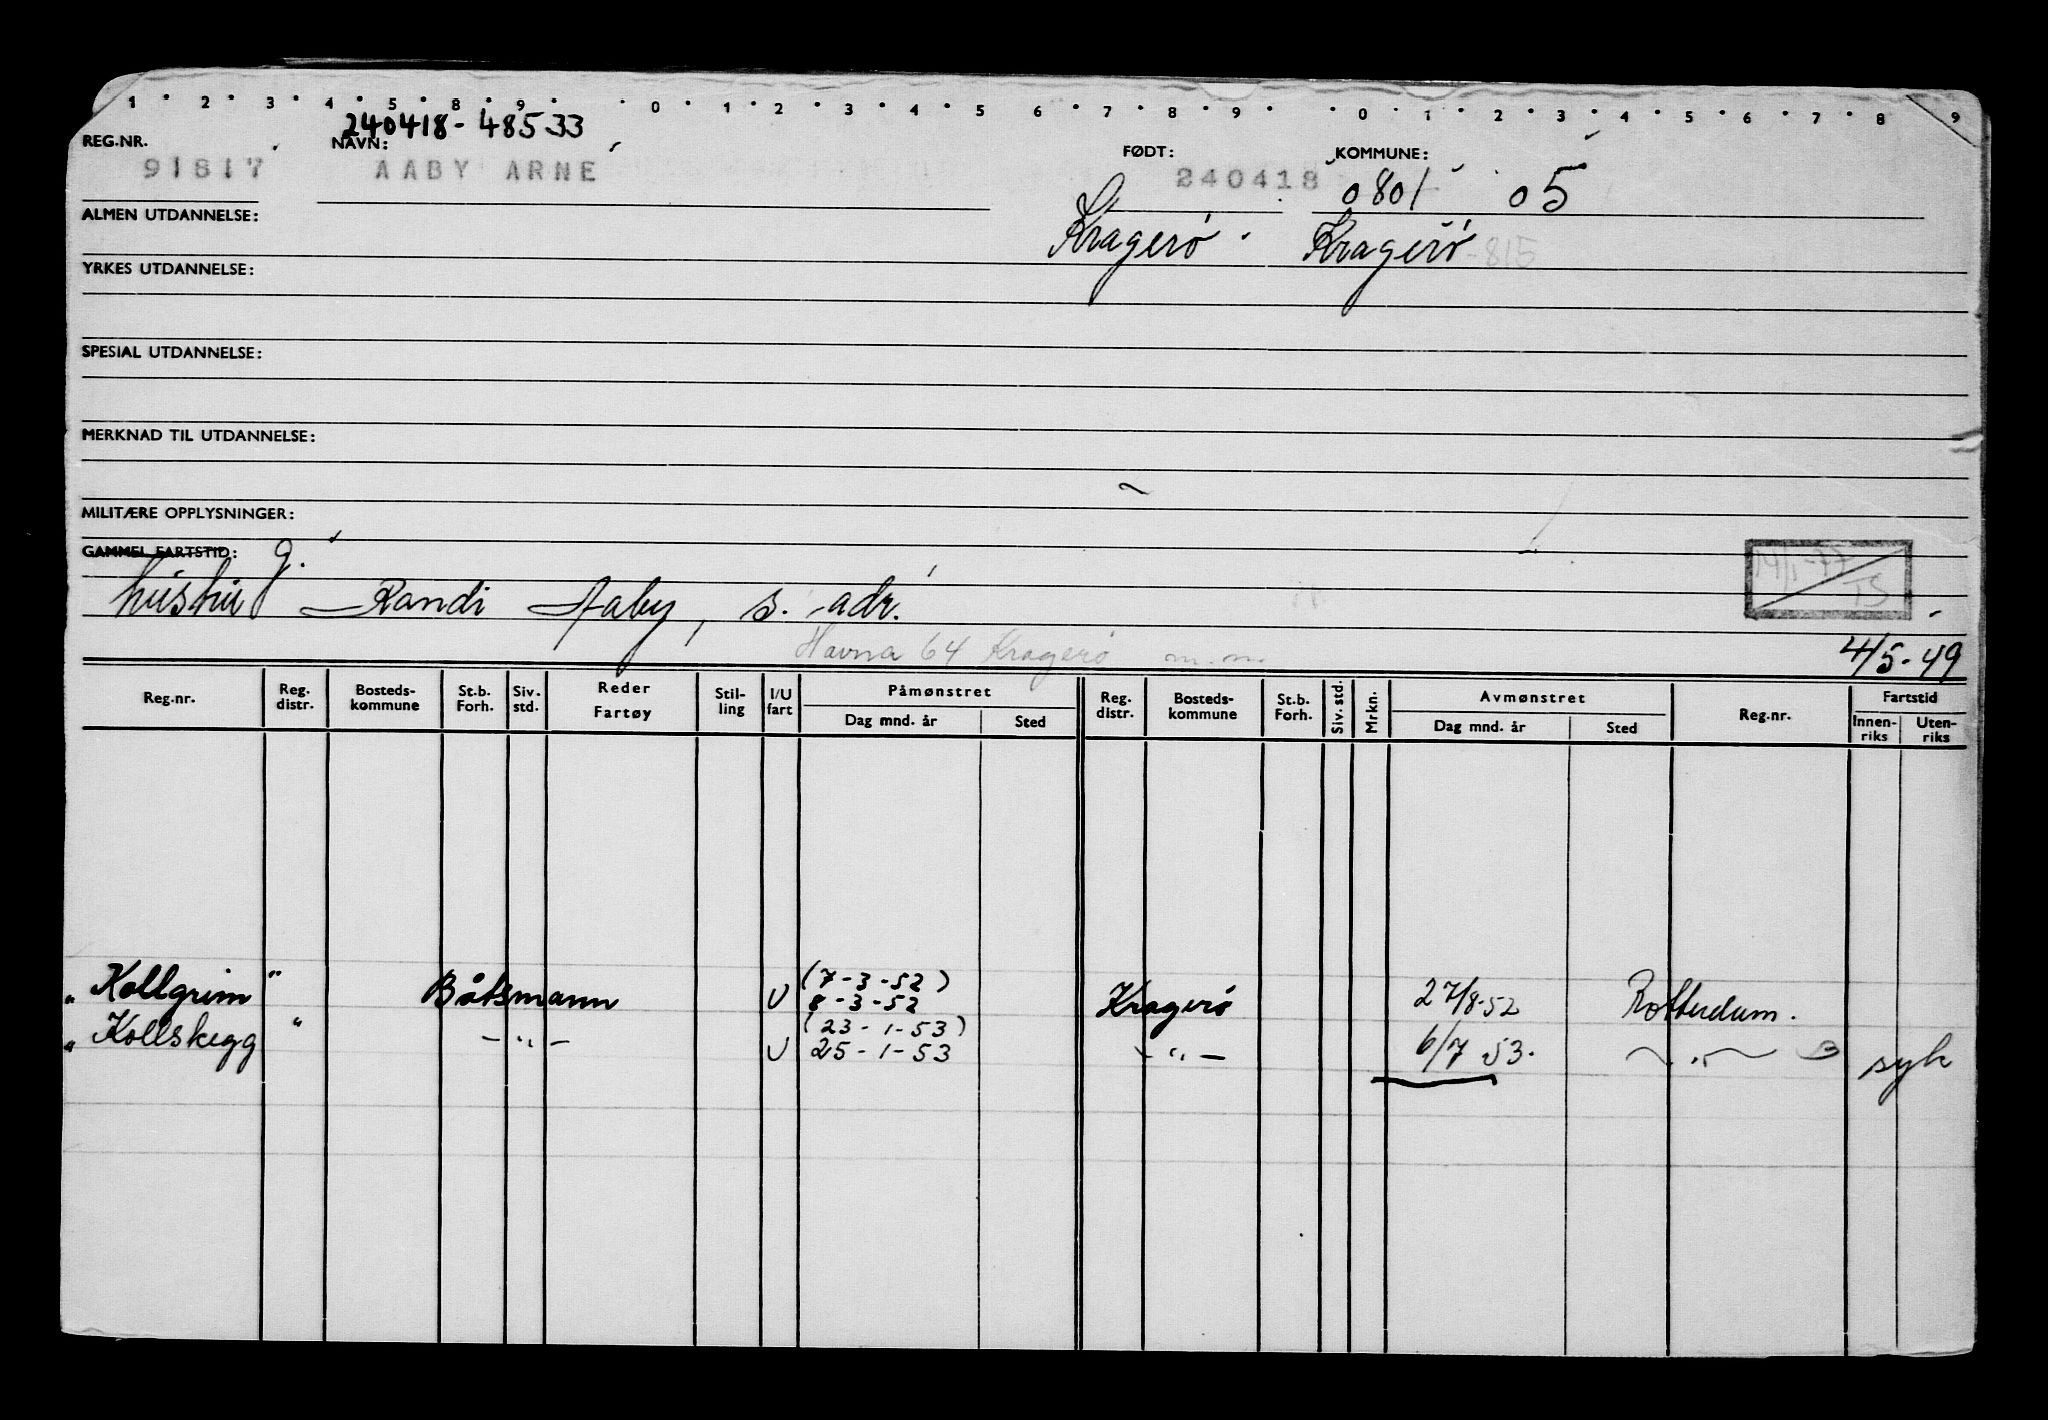 1 2 3 4 5 8 9 0 1 2 3 4 5 6 7 8 9 0 1 2 3 4 5 6 7 8 9
240418-48533
REG.NR. NAVN: FØDT: KOMMUNE:
91817 AABY ARNE 240418 0801 05
ALMEN UTDANNELSE: Kragerö Kragerö -815
YRKES UTDANNELSE:
SPESIAL UTDANNELSE:
MERKNAD TIL UTDANNELSE:
MILITÆRE OPPLYSNINGER:
GAMMEL FARTSTID: g.
14/1-77
TS
hushu Randi Aaby, s. adr.
Havna 64 Kragerö m.m.
4/5-49
Reg.nr. Reg. distr. Bosteds-kommune St.b. Forh. Siv. std. Reder Fartøy Stil-ling I/U fart Påmønstret Reg. distr. Bosteds-kommune St.b. Forh. Siv. std. Mrkn. Avmønstret Reg.nr. Fartstid
Dag mnd. år Sted Dag mnd. år Sted Innen-riks Uten-riks
(7-3-52)
" Kollgrim " Båtsmann U 8-3-52 Kragerö 27/8-52 Rotterdam.
(23-1-53)
" Kollskegg " -"- U 25-1-53 -"- 6/7 53. -"- syk